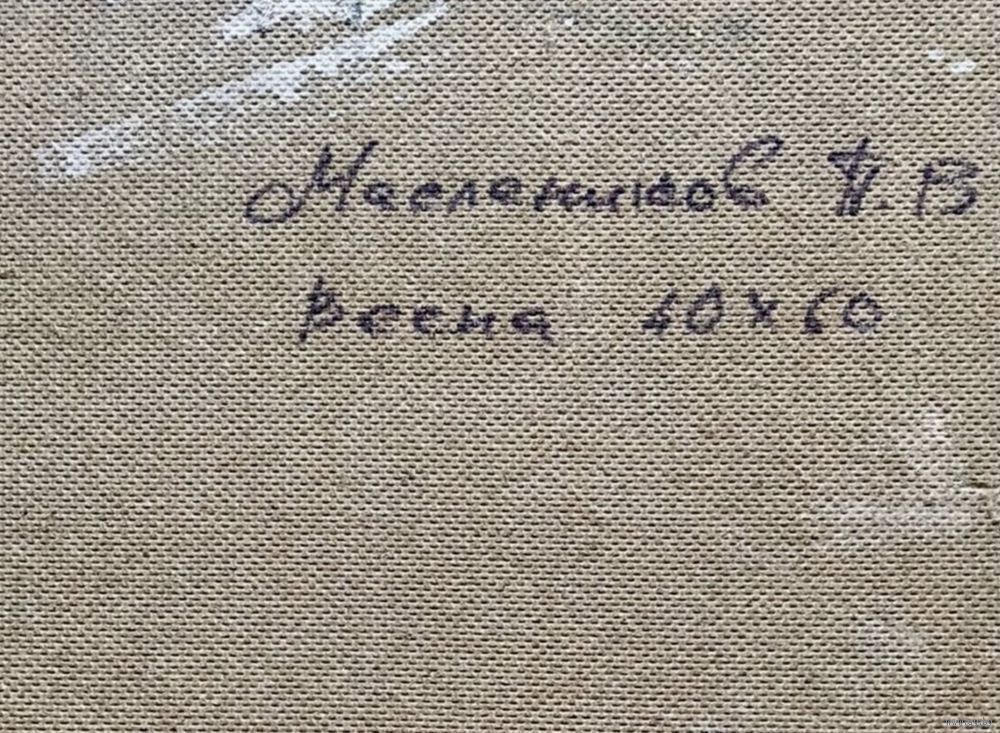 Масленников П.В
весна 40х60